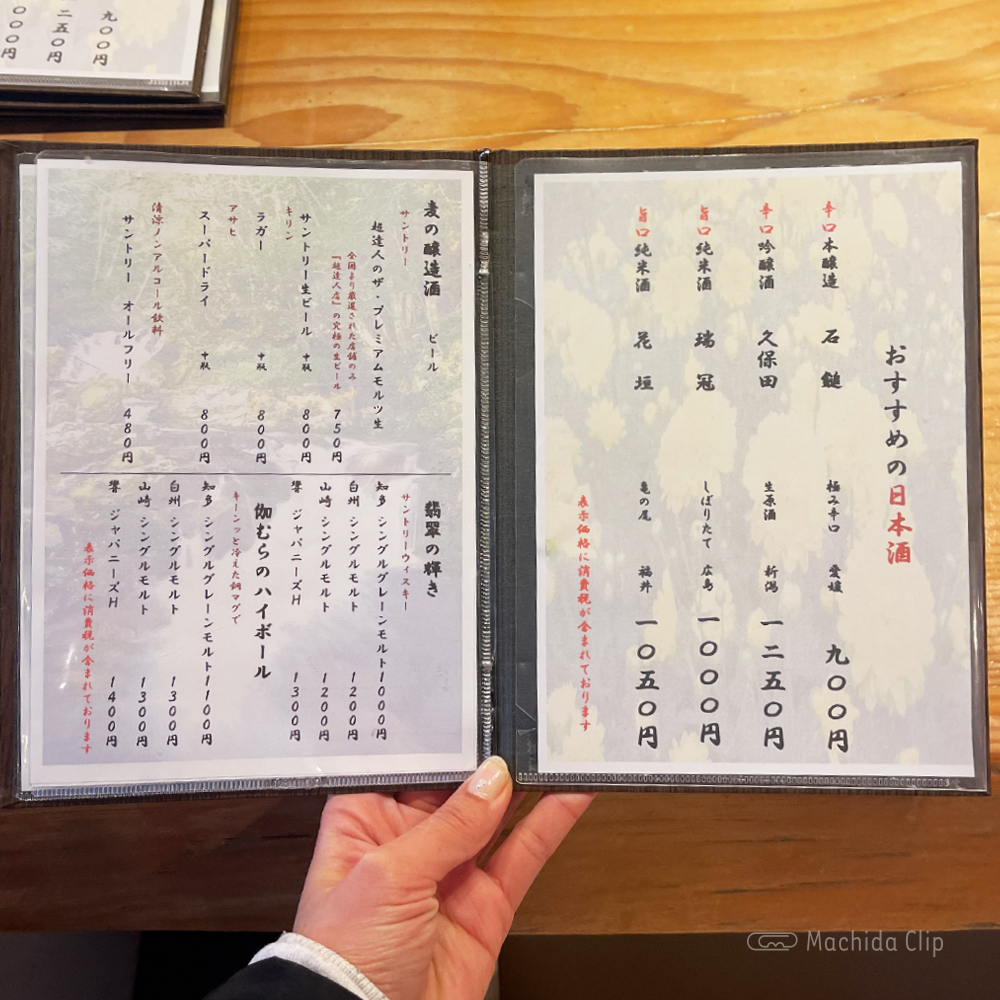 おすすめの日本酒
辛口 本醸造 石鎚 極み辛口 愛媛 九〇〇円
辛口 吟醸酒 久保田 生原酒 新潟 一二五〇円
旨口 純米酒 瑞冠 しぼりたて 広島 一〇〇〇円
旨口 純米酒 花垣 亀の尾 福井 一〇五〇円
表示価格に消費税が含まれております
麦の醸造酒 ビール
サントリー
超達人のザ・プレミアムモルツ生 750円
全国より厳選された店舗のみ
『超達人店』の究極の生ビール
サントリー生ビール 中瓶 800円
キリン
ラガー 中瓶 800円
アサヒ
スーパードライ 中瓶 800円
清涼ノンアルコール飲料
サントリー オールフリー 480円
翡翠の輝き
サントリーウィスキー
知多 シングルグレーンモルト1000円
白州 シングルモルト 1200円
山崎 シングルモルト 1200円
響 ジャパニーズH 1300円
伽むらのハイボール
キーンッと冷えた銅マグで
知多 シングルグレーンモルト1100円
白州 シングルモルト 1300円
山崎 シングルモルト 1300円
響 ジャパニーズH 1400円
表示価格に消費税が含まれております
九〇〇円
二五〇円
〇〇〇円
Machida Clip